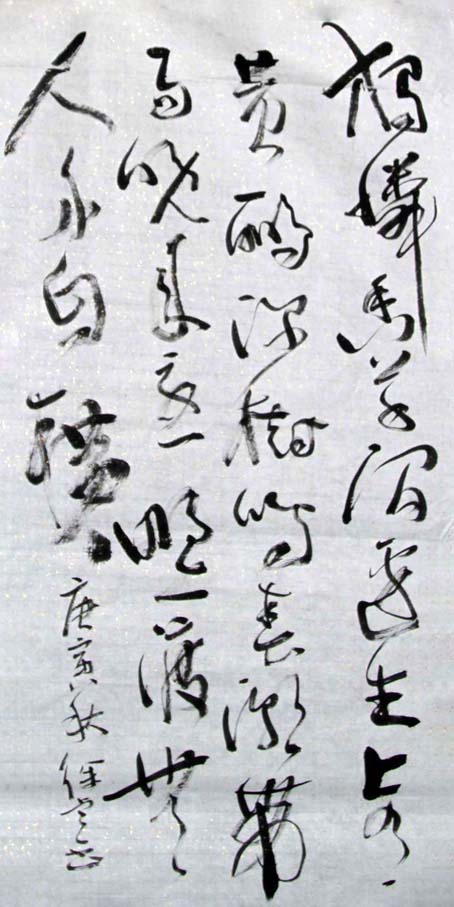 獨憐幽草澗邊生上有
黄鹂深樹鳴春潮帶
雨晚来急野渡無
人舟自横
庚寅秋徐